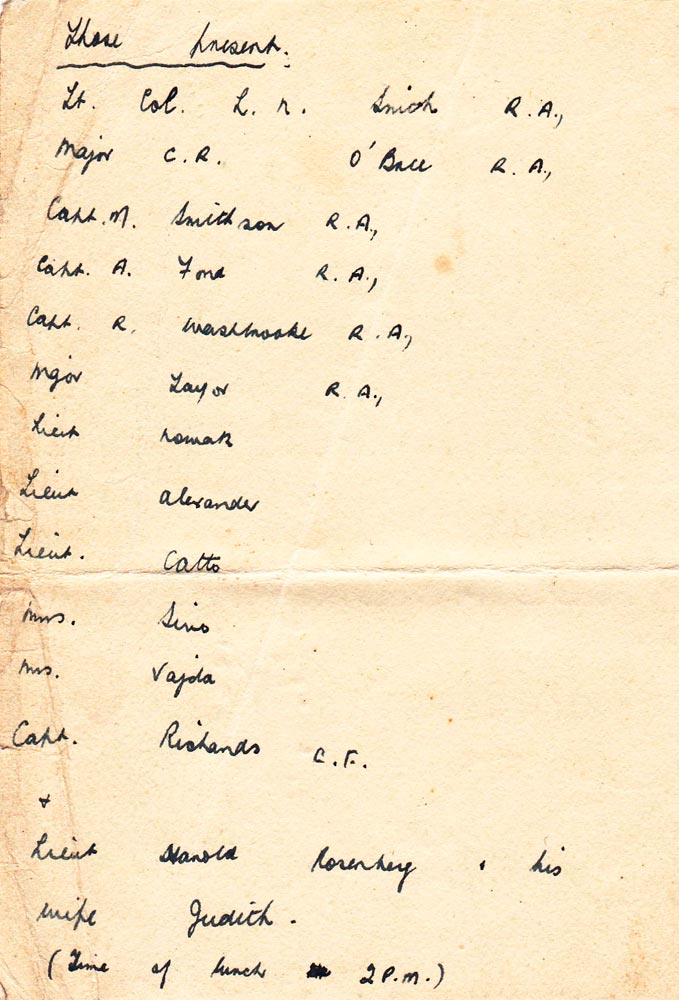 Those present.
Lt. Col. L. N. Smith R.A.,
Major C.R. O'Bree R.A.,
Capt. M. Smithson R.A.,
Capt. A. Ford R.A.,
Capt. R. Washbrooke R.A.,
Major Taylor R.A.,
Lieut Nowak
Lieut Alexander
Lieut. Catto
Mrs.
Mrs. Vajda
Capt. Richards C.F.
+
Lieut Harold Rosenberg & his
wife Judith.
(Time of lunch 2 P.M.)